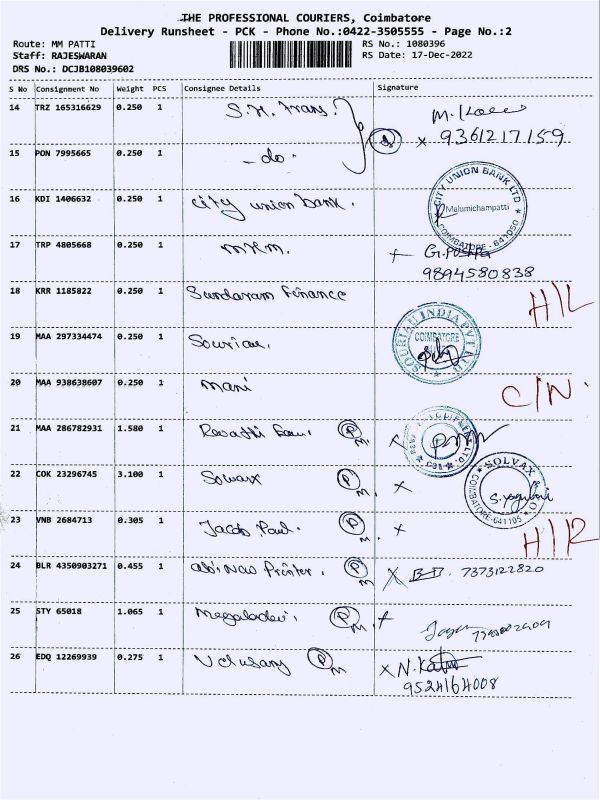 THE PROFESSIONAL COURIERS, Coimbatore
Delivery Runsheet - PCK - Phone No.:0422-3505555 - Page No.:2
Route: MM PATTI
RS No.: 1080396
Staff: RAJESWARAN
RS Date: 17-Dec-2022
DRS No.: DCJB108039602
S No Consignment No Weight PCS Consignee Details Signature
14 TRZ 165316629 0.250 1 S.H. Trans.
9361217159
15 PON 7995665 0.250 1 - do.
16 KDI 1406632 0.250 1 City union bank.
CITY UNION BANK LTD
Malumichampatti
COIMBATORE - 641050
17 TRP 4805668 0.250 1 MKM. G. Pushpa
9894580838
18 KRR 1185822 0.250 1 Sundaram Finance
H/L
19 MAA 297334474 0.250 1 Souriau.
SOURIAU INDIA PVT LTD
COIMBATORE
20 MAA 938638607 0.250 1 Mani
C/N.
21 MAA 286782931 1.580 1 P M.
22 COK 23296745 3.100 1 Solvax P M. x
SOLVAX
COIMBATORE-641105
23 VNB 2684713 0.305 1 Jacob Paul. P M x
H/R
24 BLR 4350903271 0.455 1 Abinas Printer. P M 7373122820
25 STY 65018 1.065 1 Megaladevi. P M.
26 EDQ 12269939 0.275 1 Velusamy P M x N.
9524164008